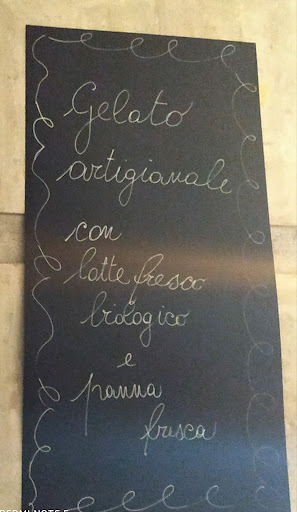 Gelato
artigianale
con
latte fresco
biologico
e
panna
fresca
REDMI NOTE 5